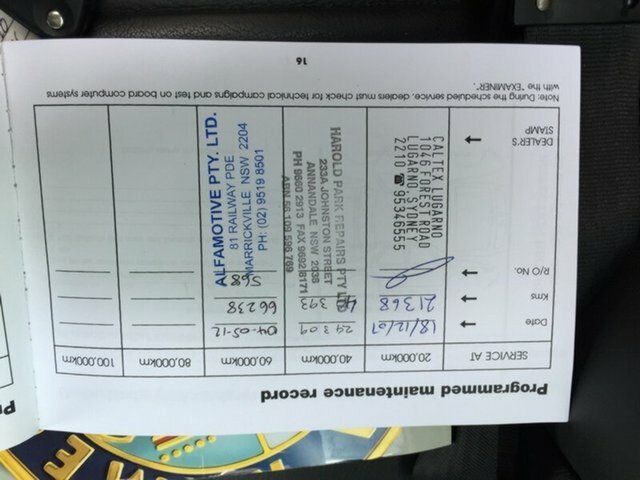 Programmed maintenance record
SERVICE AT
20.000km
40.000km
60.000km
80.000km
100.000km
Date
18/12/07
29 3 09
04-05-12
Kms
21368
393
66238
R/O No.
568
DEALER'S
STAMP
CALTEX LUGARNO
1046 FOREST ROAD
LUGARNO SYDNEY
2210 ☎ 95346555
HAROLD PARK REPAIRS PTY LTD
233A JOHNSTON STREET
ANNANDALE NSW 2038
PH 9660 2913 FAX 9692 8171
ABN 56 109 596 769
ALFAMOTIVE PTY. LTD.
81 RAILWAY PDE
MARRICKVILLE NSW 2204
PH: (02) 9519 8501
Note: During the scheduled service, dealers must check for technical campaigns and test on board computer systems
with the "EXAMINER".
16